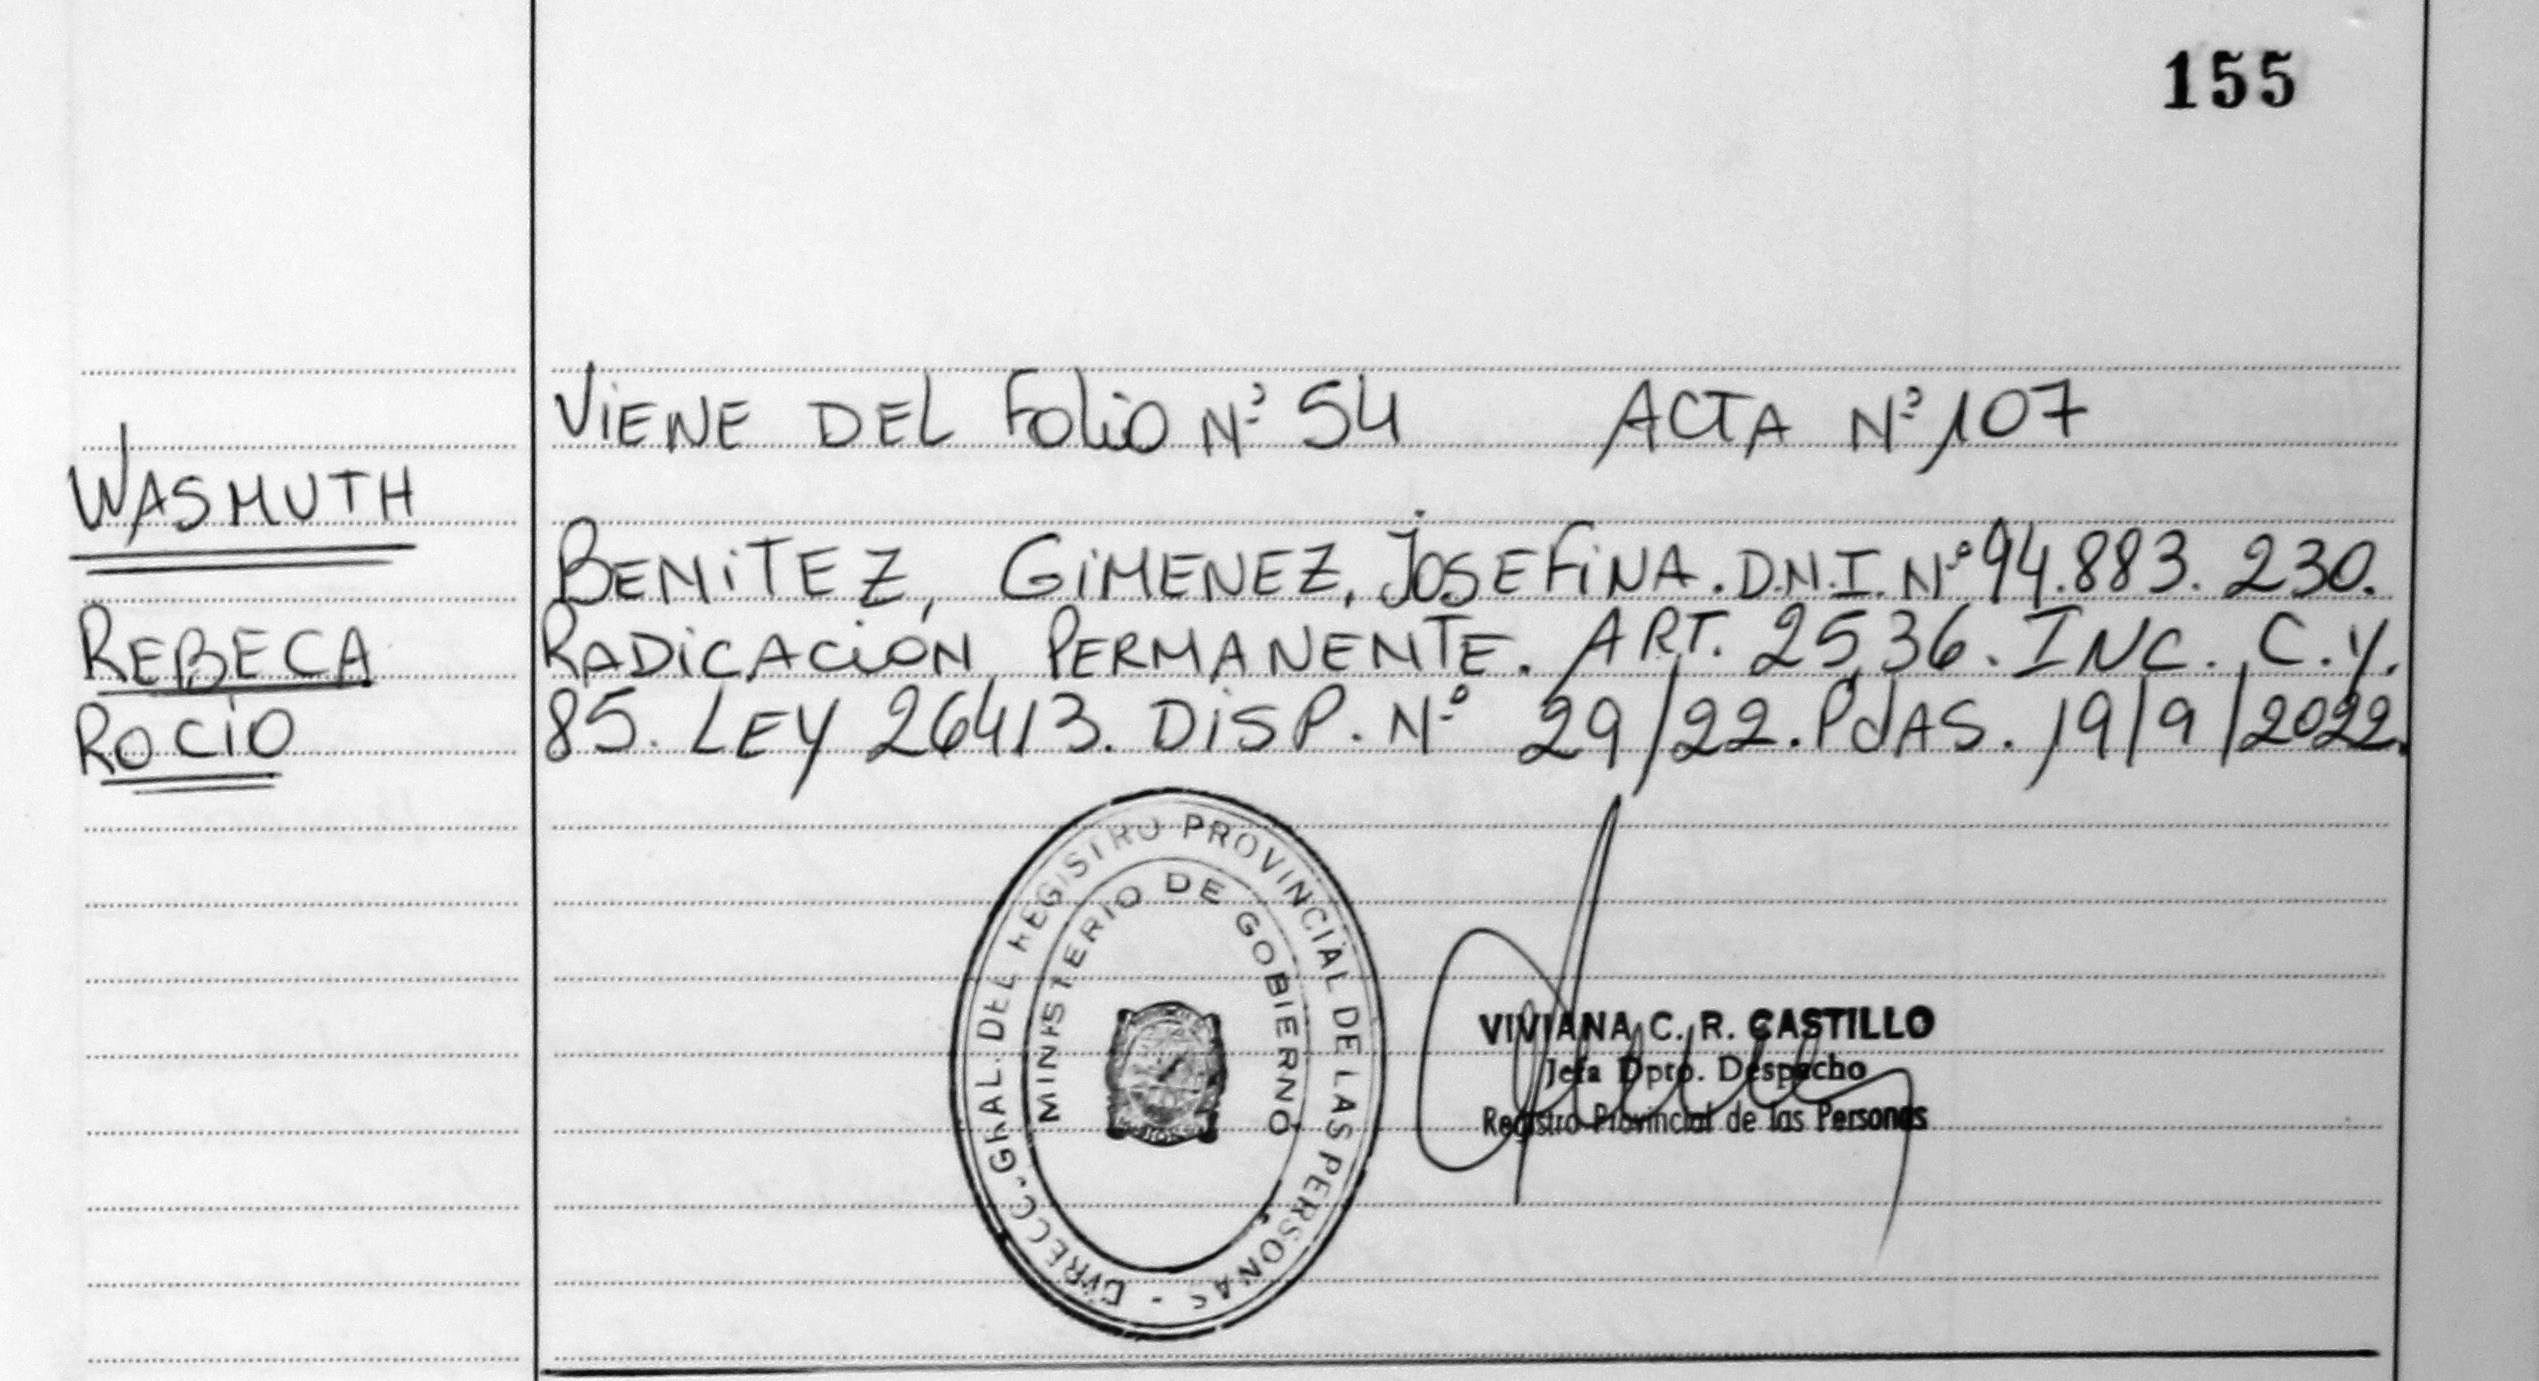 155
VIENE DEL FOLIO Nº 54 ACTA Nº 107
WASMUTH
BENITEZ, GIMENEZ, JOSEFINA. D.N.I. Nº 94.883.230.
REBECA
RADICACIÓN PERMANENTE. ART. 2536. INC. C. Y.
ROCÍO
85. LEY 26413. DISP. Nº 29/22. PdAS. 19/9/2022.
DIRECC. GRAL. DEL REGISTRO PROVINCIAL DE LAS PERSONAS -
MINISTERIO DE GOBIERNO
VIVIANA C. R. CASTILLO
Jefa Dpto. Despacho
Registro Provincial de las Personas